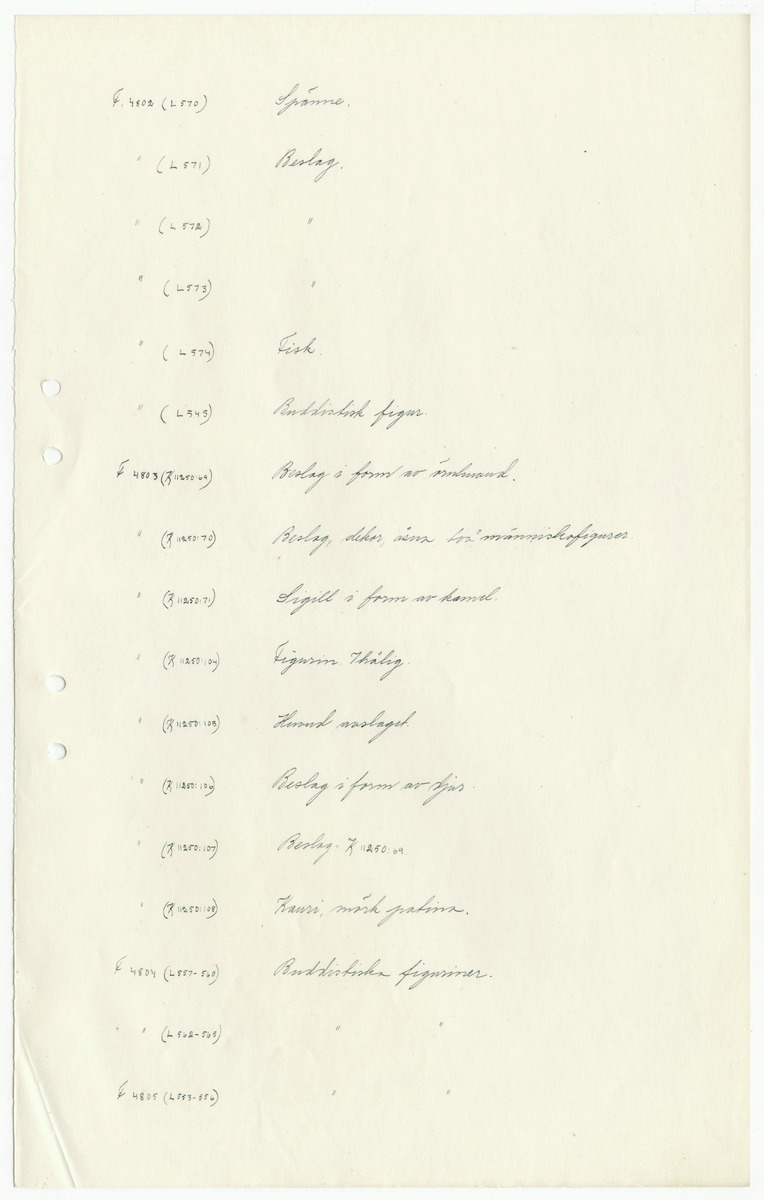 F. 4802 (L 570) Spänne.
" (L 571) Beslag.
" (L 572) "
" (L 573) "
" (L 574) Fisk.
" (L 543) Buddistisk figur.
F 4803 (K 11250:69) Beslag i form av
" (K 11250:70) Beslag, dekor, åsna två människofigurer.
" (K 11250:71) Sigill i form av kamel.
" (K 11250:104) Figurin. Ihålig.
" (K 11250:105) Huvud avslaget.
" (K 11250:106) Beslag i form av djur.
" (K 11250:107) Beslag. K 11250:69.
" (K 11250:108) Kauri, mörk patina.
F 4804 (L 557-560) Buddistiska figuriner.
" " (L 562-565) " "
F 4805 (L 553-556) " "